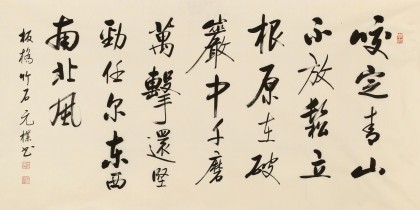 咬定青山
不放鬆立
根原在破
巖中千磨
萬擊還堅
勁任尔东西
南北風
板橋竹石元樸书